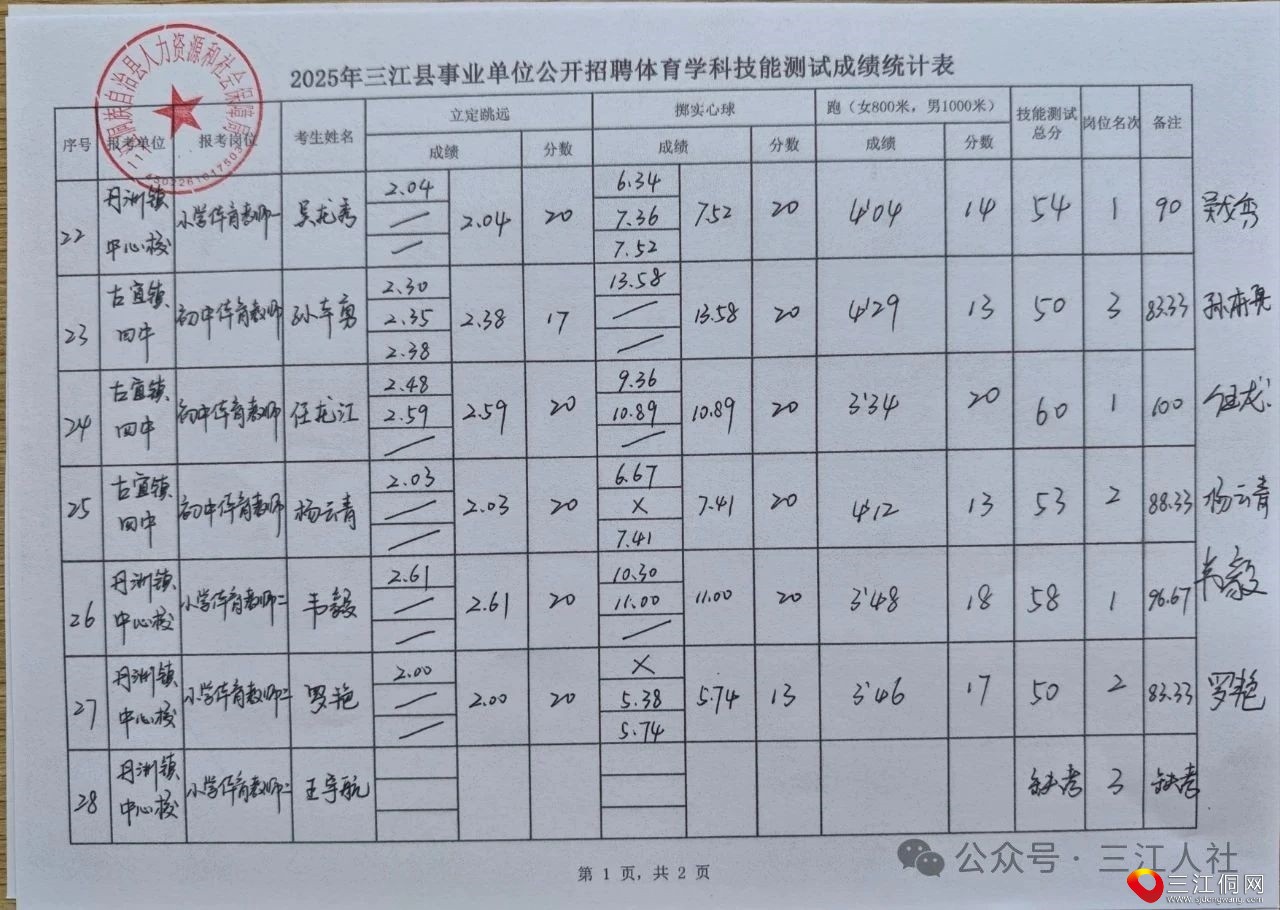 2025年三江县事业单位公开招聘体育学科技能测试成绩统计表
序号 报考单位 报考岗位 考生姓名 立定跳远 掷实心球 跑（女800米，男1000米） 技能测试总分 岗位名次 备注
成绩 分数 成绩 分数 成绩 分数
22 丹洲镇中心校 小学体育教师一 吴龙秀 2.04 / / 2.04 20 6.34 7.36 7.52 7.52 20 4'04 14 54 1 90
23 古宜镇四中 初中体育教师 孙 勇 2.30 2.35 2.38 2.38 17 13.58 / / 13.58 20 4'29 13 50 3 83.33
24 古宜镇四中 初中体育教师 任龙江 2.48 2.59 / 2.59 20 9.36 10.89 / 10.89 20 3'34 20 60 1 100
25 古宜镇四中 初中体育教师 杨云青 2.03 / / 2.03 20 6.67 × 7.41 7.41 20 4'12 13 53 2 88.33 杨云青
26 丹洲镇中心校 小学体育教师二 韦毅 2.61 / / 2.61 20 10.30 11.00 / 11.00 20 3'48 18 58 1 96.67 韦毅
27 丹洲镇中心校 小学体育教师二 罗艳 2.00 / / 2.00 20 × 5.38 5.74 5.74 13 3'46 17 50 2 83.33 罗艳
28 丹洲镇中心校 小学体育教师二 王宇航 缺考 3 缺考
第 1 页，共 2 页
公众号·三江人社
三江侗网
www.sjdongwang.com